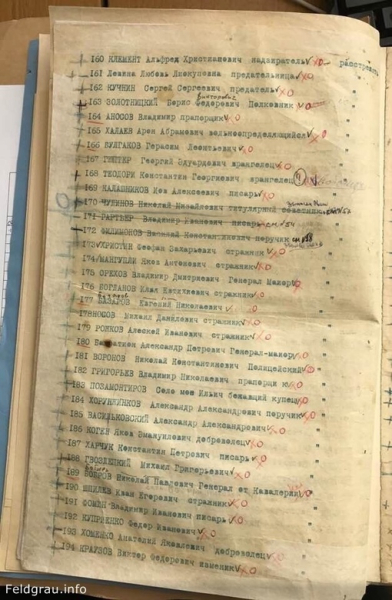 160 КЛЕМЕНТ Альфред Христианович надзиратель расстрелян
161 Любовь предательница
162 КУЧНИН Сергей Сергеевич предатель
163 ЗОЛОТНИЦКИЙ Борис Федорович Полковник
164 АНОСОВ Владимир прапорщик
165 ХАЛАЕВ Арон Абрамович вольноопределяющийся
166 БУЛГАКОВ Герасим Леонтьевич
167 Георгий Эдуардович врангелец
168 ТЕОДОРИ Константин Георгиевич врангелец
169 КАЛАШНИКОВ Яов Алексеевич писарь
170 Николай Михайлович титулярный советник
171 Владимир Иванович писарь
172 ФИЛИМОНОВ Василий Константинович поручик
173 УХРИСТИН Феофан Захарьевич стражник
174 МАНГУПЛИ Яков Антонович стражник
175 ОРЕХОВ Владимир Дмитриевич Генерал майор
176 БОГДАНОВ Клад стражник
177 Евгений Николаевич
178 НОСОВ Михаил Данилович стражник
179 РОЙКОВ Алексей Иванович стражник
180 Александр Петрович Генерал-майор
181 ВОРОНОВ Николай Константинович Полицейский
182 ГРИГОРЬЕВ Владимир Николаевич прапорщик
183 ПОЗАМОНТИРОВ Ильич бежавший купец
184 ХОРУНЖИНКОВ Александр Александрович поручик
185 ВАСИЛЬКОВСКИЙ Александр Александрович
186 КОГЕН Яков Эмануилович доброволец
187 ХАРЧУК Константин Петрович писарь
188 ГВОЗДЕЦКИЙ Михаил Григорьевич
189 БОБРОВ Николай Павлович Генерал от Кавалерии
190 ШМИЛЕВ Клан Егорович стражник
191 ФОМИН Владимир Иванович писарь
192 КУПРИЕНКО Федор Иванович
193 ХОМЕНКО Анатолий Яковлевич доброволец
194 КРАУЗОВ Виктор Федорович изменник
Feldgrau.info